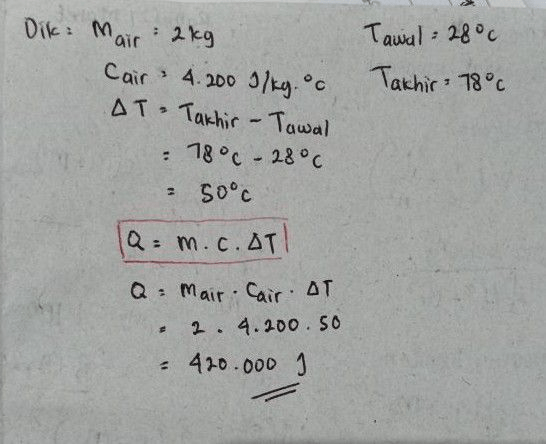 Dik : Mair : 2 kg Tawal = 28°c
Cair : 4.200 J/kg.°c Takhir = 78°c
ΔT = Takhir - Tawal
= 78°c - 28°c
= 50°c
Q = m . c . ΔT
Q = Mair . Cair . ΔT
= 2 . 4.200 . 50
= 420.000 J